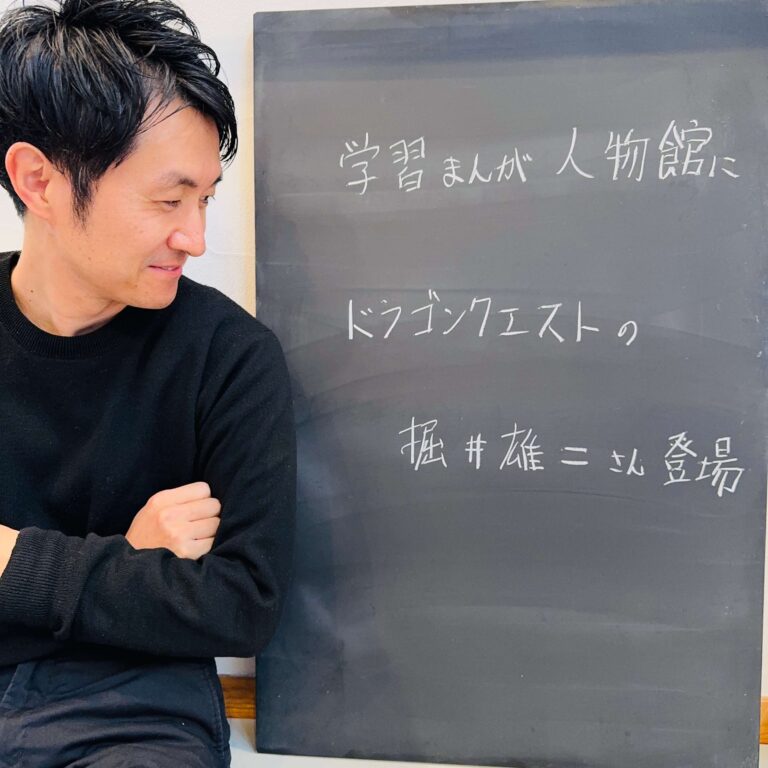 学習まんが 人物館に
ドラゴンクエストの
掘井雄二さん登場